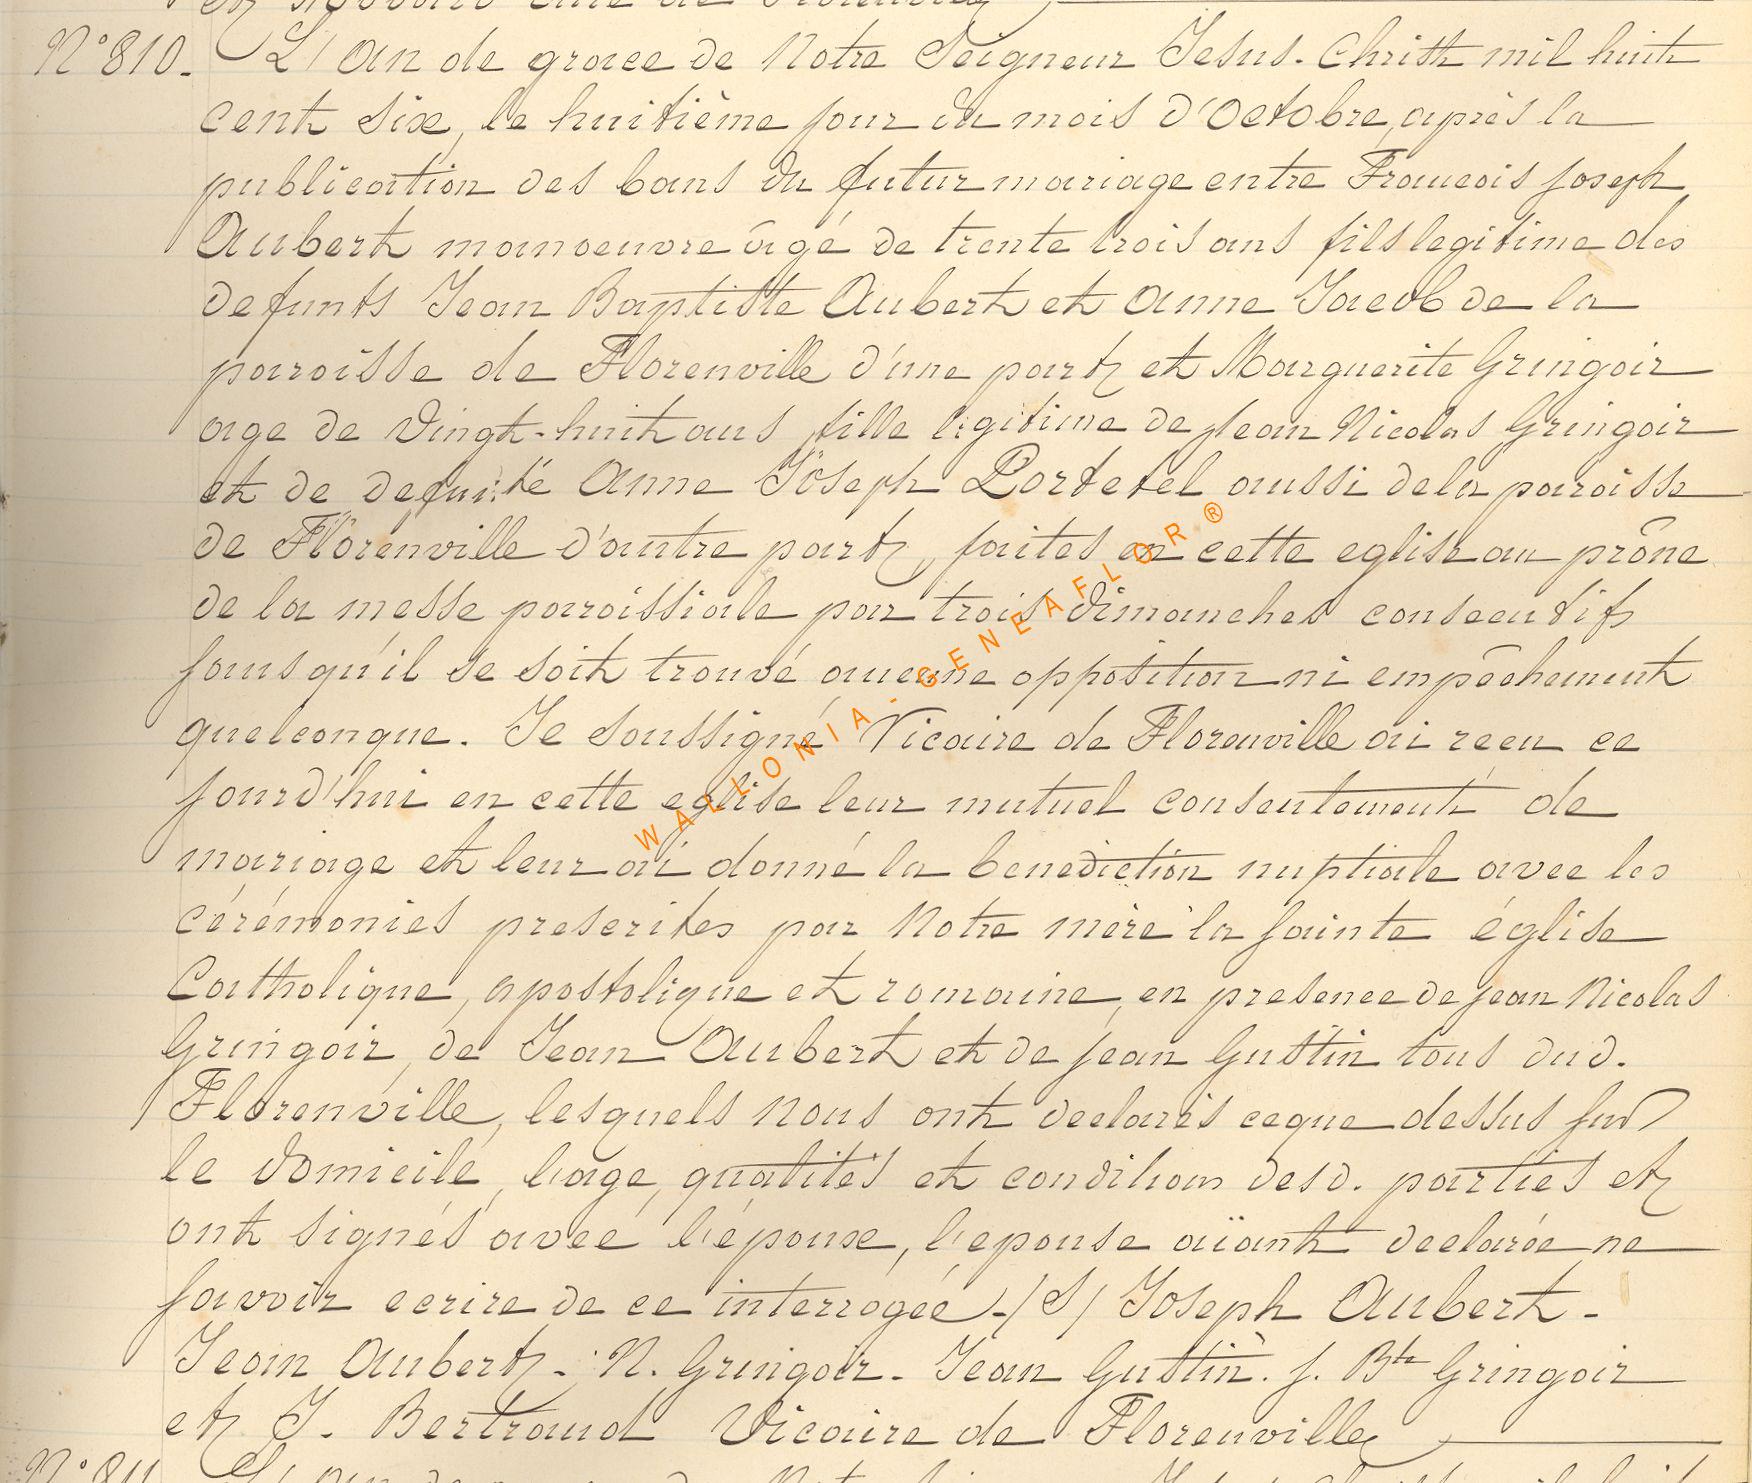 N° 810. L'An de grace de Notre Seigneur Jesus-Christ mil huit
cent six, le huitième jour du mois d'Octobre, après la
publication des bans du futur mariage entre François joseph
Aubert manoeuvre âgé de trente trois ans fils legitime des
defunts Jean Baptiste Aubert et Anne Jacob de la
paroisse de Florenville d'une part et Marguerite Gringoir
age de vingt-huit ans, fille legitime de jean Nicolas Gringoir
et de defunte Anne Joseph Portefel aussi de la paroisse
de Florenville d'autre part, faites en cette eglise au prône
de la messe paroissiale par trois dimanches consecutifs
sans qu'il se soit trouvé aucune opposition ni empêchement
quelconque. Je soussigné Vicaire de Florenville ai recu ce
jourd'hui en cette eglise leur mutuel consentement de
mariage et leur ai donné la benediction nuptiale avec les
cérémonies prescrites par Notre mère la sainte église
Catholique, apostolique et romaine, en presence de jean Nicolas
Gringoir, de Jean Aubert et de jean Gustin tous dud.
Florenville, lesquels nous ont declarés ce que dessus sur
le domicile, l'age, qualités et condition desd. parties et
ont signés avec l'époux, l'epouse aïant declarée ne
savoir ecrire de ce interrogée -/S/ Joseph Aubert -
Jean Aubert - N. Gringoir - Jean Gustin. j. Bte Gringoir
et J. Bertrand Vicaire de Florenville
N° 811
WALLONIA-GENEAFLOR®